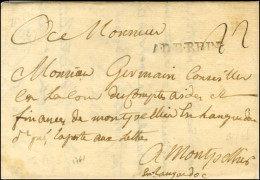 A Monsieur
22
A.D.B.RHIN
Monsieur Germain Conseiller
En la Cour des Comptes aides et
finances de montpellier en Languedoc
la poste aux Lettres
A Montpellier
en Languedoc